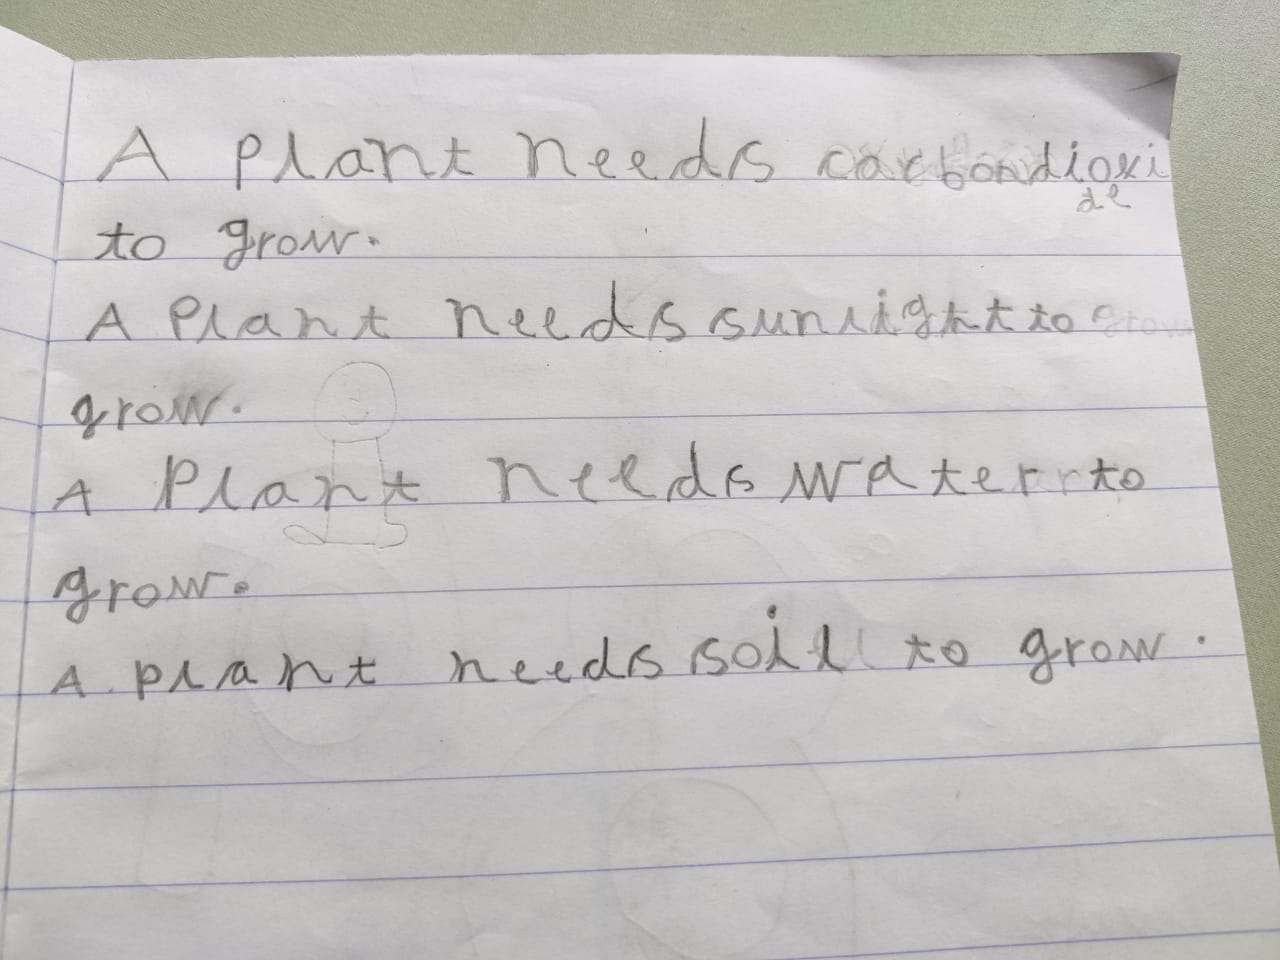 A plant needs carbondioxi
de
to grow.
A Plant needs sunlight to grow
grow.
A Plant needs water to
grow.
A plant needs soil to grow.